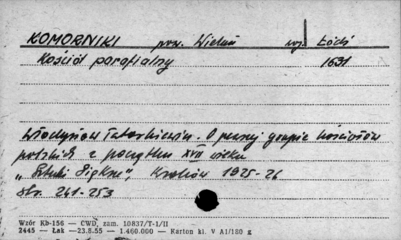 KOMORNIKI pow. Wieluń woj. Łódź
Kościół parafialny 1631
Władysław Tatarkiewicz. O pewnej grupie kościołów
polskich z początku XVII wieku
„Sztuki Piękne", Kraków 1925-26
str. 241-253
Wzór Kb-156 — CWD, zam. 10837/T-1/II
2445 — Łak — 23.8.55 — 1.460.000 — Karton kl. V A1/180 g